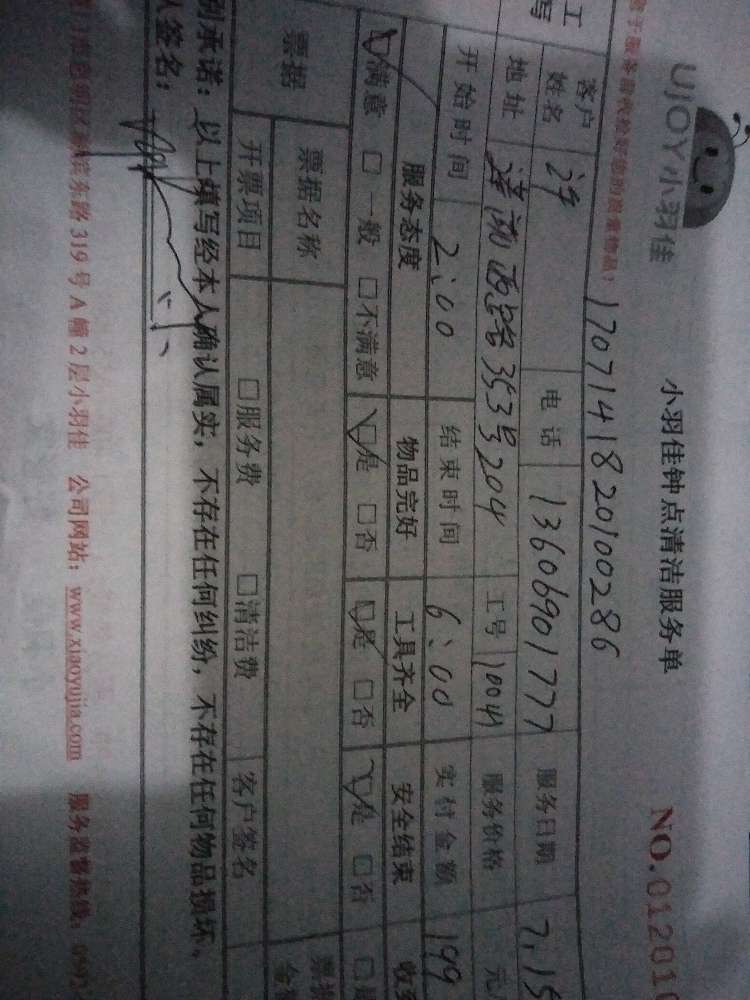 UJOY小羽佳
小羽佳钟点清洁服务单
NO.012010
1707141820100286
客户姓名 许 电话 13606901777 服务日期 7.15
地址 莲前西路353号204 工号 10041 服务价格 元
开始时间 2:00 结束时间 6:00 实付金额 199
服务态度 物品完好 工具齐全 安全结束
☑满意 □一般 □不满意 ☑是 □否 ☑是 □否 ☑是 □否
票据 票据名称
开票项目 □服务费 □清洁费 客户签名
别承诺：以上填写经本人确认属实，不存在任何纠纷，不存在任何物品损坏，
人签名：
东路319号A幢2层小羽佳 公司网站：www.xiaoyujia.com 服务监督热线：